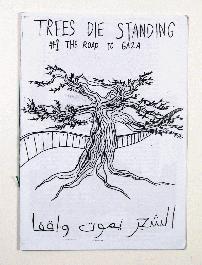 TREES DIE STANDING
#1 THE ROAD TO GAZA
الشجر يموت واقفا